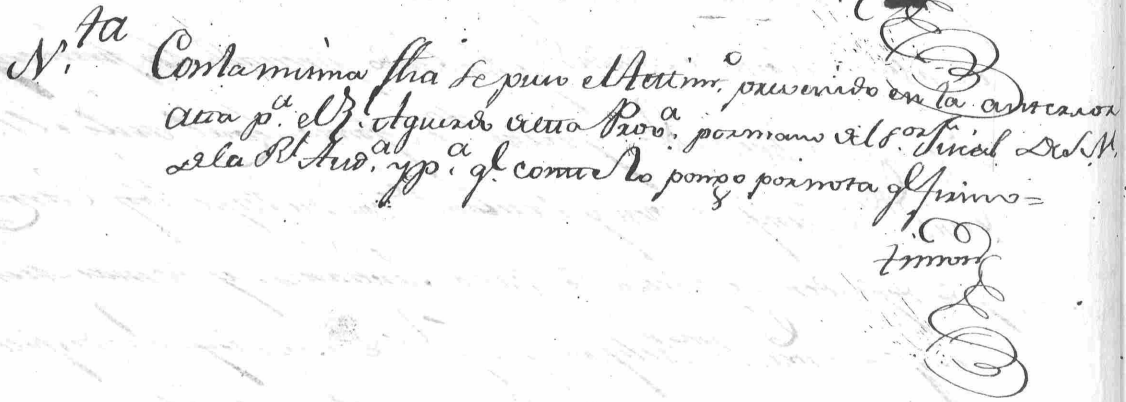 N.ta Con la misma fha se puso el testim.o prevenido en la anterior
acta p.a el R.l Aguerdo de esta Prov.a por mano del S.or Fiscal De S.M.
de la R.l Aud.a y p.a q.e conste lo pongo por nota q.e firmo=
Simon